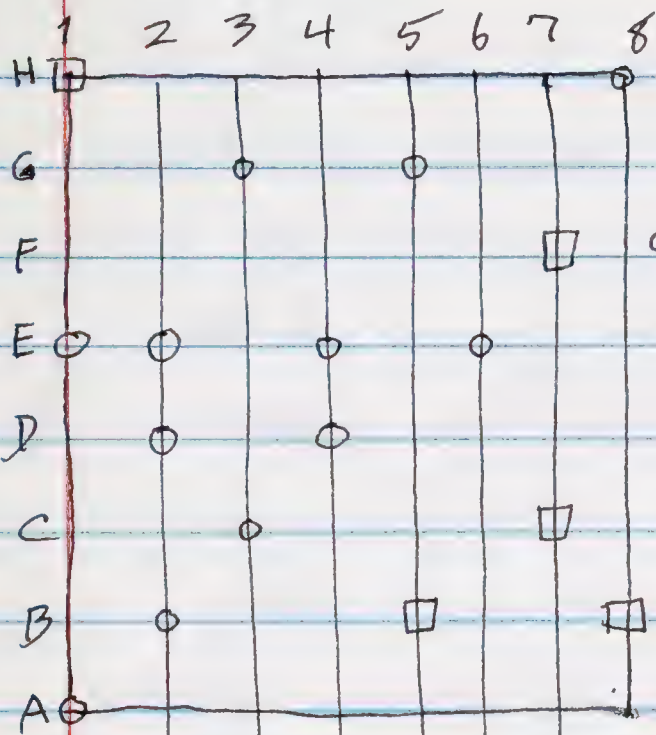 1 2 3 4 5 6 7 8
H
G
F
E
D
C
B
A